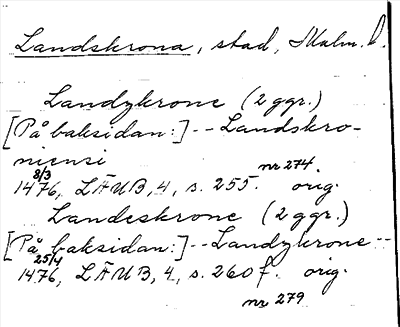 Landskrona, stad, Malm. l.
Landzkrone (2 ggr.)
[På baksidan:] -- Landskro-
niensi
8/3 1476, LÄUB, 4, s. 255. nr 274. orig.
Landeskrone (2 ggr.)
[På baksidan:] -- Landzkrone --
25/4 1476, LÄUB, 4, s. 260 f. orig.
nr 279